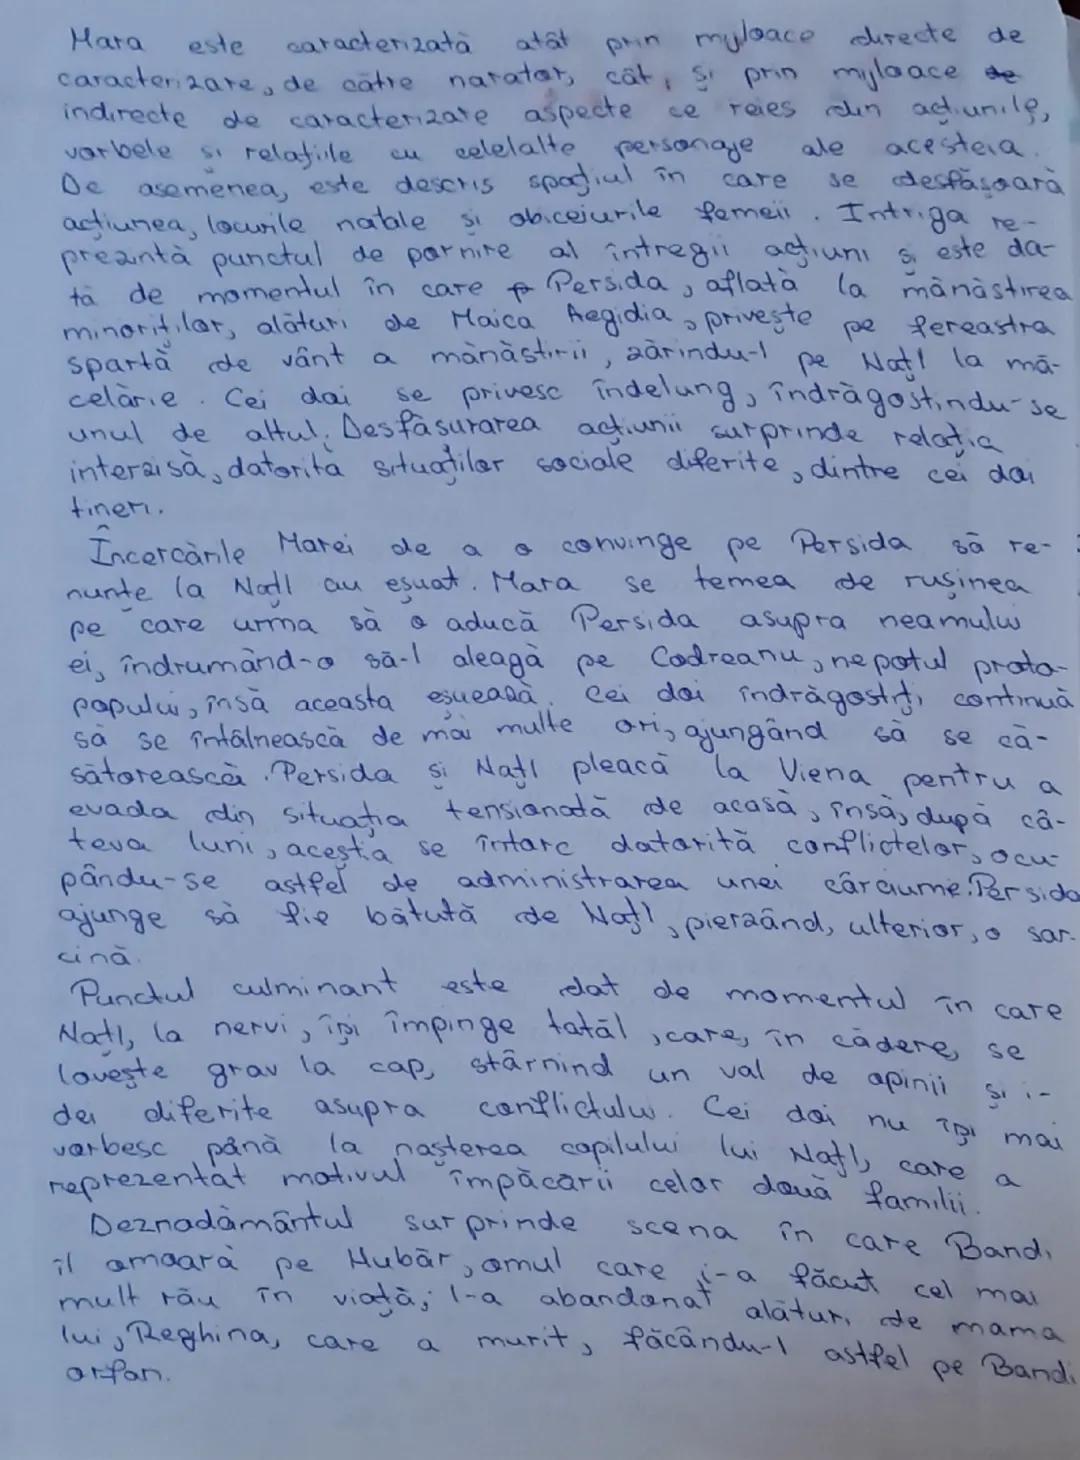 Mara este caracterizată atât prin mijloace directe de
caracterizare, de către narator, cât și prin mijloace de
indirecte de caracterizare aspecte ce reies din acțiunile,
vorbele și relațiile cu celelalte personaje ale acesteia.
De asemenea, este descris spațiul în care se desfășoară
acțiunea, locurile natale și obiceiurile femeii. Intriga re-
prezintă punctul de pornire al întregii acțiuni și este da-
tă de momentul în care Persida, aflată la mănăstirea
minoriților, alături de Maica Aegidia, privește pe fereastra
spartă de vânt a mănăstirii, zărindu-l pe Națl la mă-
celărie. Cei doi se privesc îndelung, îndrăgostindu-se
unul de altul. Desfășurarea acțiunii surprinde relația
interzisă, datorită situațiilor sociale diferite, dintre cei doi
tineri.
Încercările Marei de a o convinge pe Persida să re-
nunțe la Națl au eșuat. Mara se temea de rușinea
pe care urma să o aducă Persida asupra neamului
ei, îndrumând-o să-l aleagă pe Codreanu, nepotul proto-
popului, însă aceasta eșuează. Cei doi îndrăgostiți continuă
să se întâlnească de mai multe ori, ajungând să se că-
sătorească. Persida și Națl pleacă la Viena pentru a
evada din situația tensionată de acasă, însă, după câ-
teva luni, aceștia se întorc datorită conflictelor, ocu-
pându-se astfel de administrarea unei cârciume. Persida
ajunge să fie bătută de Națl, pierzând, ulterior, o sar-
cină.
Punctul culminant este dat de momentul în care
Națl, la nervi, își împinge tatăl, care, în cădere, se
lovește grav la cap, stârnind un val de opinii și i-
dei diferite asupra conflictului. Cei doi nu își mai
vorbesc până la nașterea copilului lui Națl, care a
reprezentat motivul împăcării celor două familii.
Deznodământul surprinde scena în care Bandi
îl omoară pe Hubăr, omul care i-a făcut cel mai
mult rău în viață; l-a abandonat alături de mama
lui, Reghina, care a murit, făcându-l astfel pe Bandi
orfan.